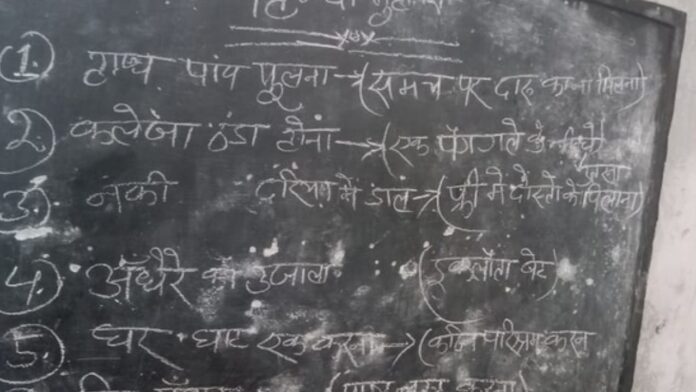 हिन्दी मुहावरे
1. हाथ पांव फूलना → (समय पर दारु का ना मिलना)
2. कलेजा ठंडा होना → (एक पैग गले के नीचे
3. नेकी दरिया मे डाल → (फ्री मे दोस्तो को पिलाना)
4. अँधेरे का उजाला (इकलौता बेटा)
5. घर घाट एक करना → (कठिन परिश्रम करना